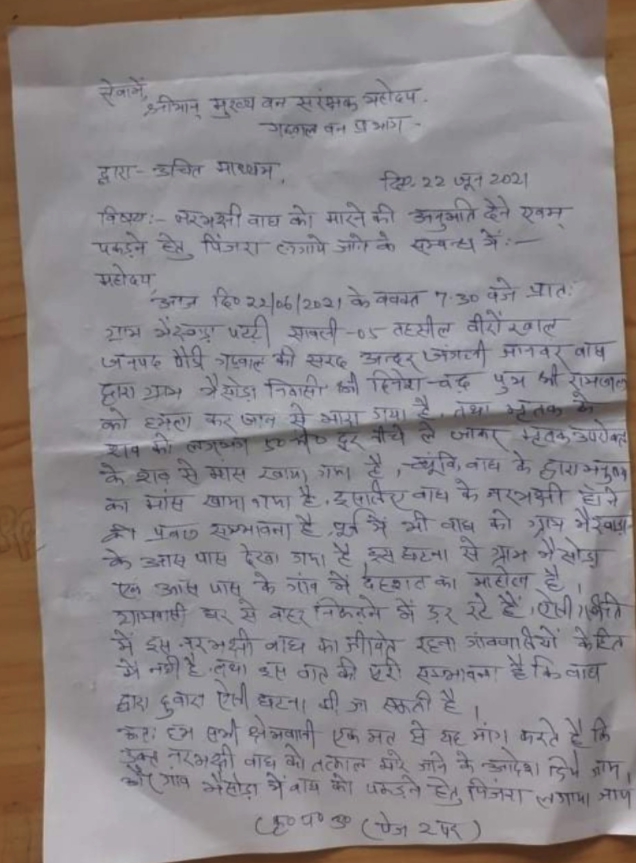 सेवामें,
श्रीमान् मुख्य वन सरंक्षक महोदय.
गढ़वाल वन प्रभाग -
द्वारा- उचित माध्यम,
दि० 22 जून 2021
विषय:- नरभक्षी वाघ को मारने की अनुमति देने एवम्
पकड़ने हेतु पिंजरा लगाये जाने के सम्बन्ध में:-
महोदय,
आज दि० 22/06/2021 के वक्त 7.30 वजे प्रात:
ग्राम पट्टी सावली-05 तहसील वीरोंखाल
जनपद पौड़ी गढ़वाल की सरद अन्दर जंगली जानवर वाघ
द्वारा ग्राम भैसोडा निवासी श्री दिनेश चंद्र पुत्र श्री रामलाल
को हमला कर जान से मारा गया है, तथा मृतक के
शव को लगभग 50 मी० दूर नीचे ले जाकर मृतक उपरोक्त
के शव से मास खाया गया है, चूंकि वाघ के द्वारा मनुष्य
का मांस खाया गया है, इसलिए वाघ के नरभक्षी होने
की प्रवल सम्भावना है, पूर्व में भी वाघ को ग्राम
के आस पास देखा गया है, इस घटना से ग्राम भैसोडा
एवं आस पास के गांव में देहशत का माहोल है,
ग्रामवासी घर से वाहर निकलने में डर रहे हैं, ऐसी स्थिति
में इस नरभक्षी वाघ का जीवित रहना गांववासियों के हित
में नही है, तथा इस वात की पूरी सम्भावना है कि वाघ
द्वारा दुवारा ऐसी घटना की जा सकती है।
अत: हम सभी क्षेत्रवासी एक मत से यह मांग करते है कि
उक्त नरभक्षी वाघ को तत्काल मारे जाने के आदेश दिये जाय,
और गांव भैसोडा में वाघ को पकड़ने हेतु पिंजरा लगाया जाय
(कृ० प० उ० (पेज 2 पर)